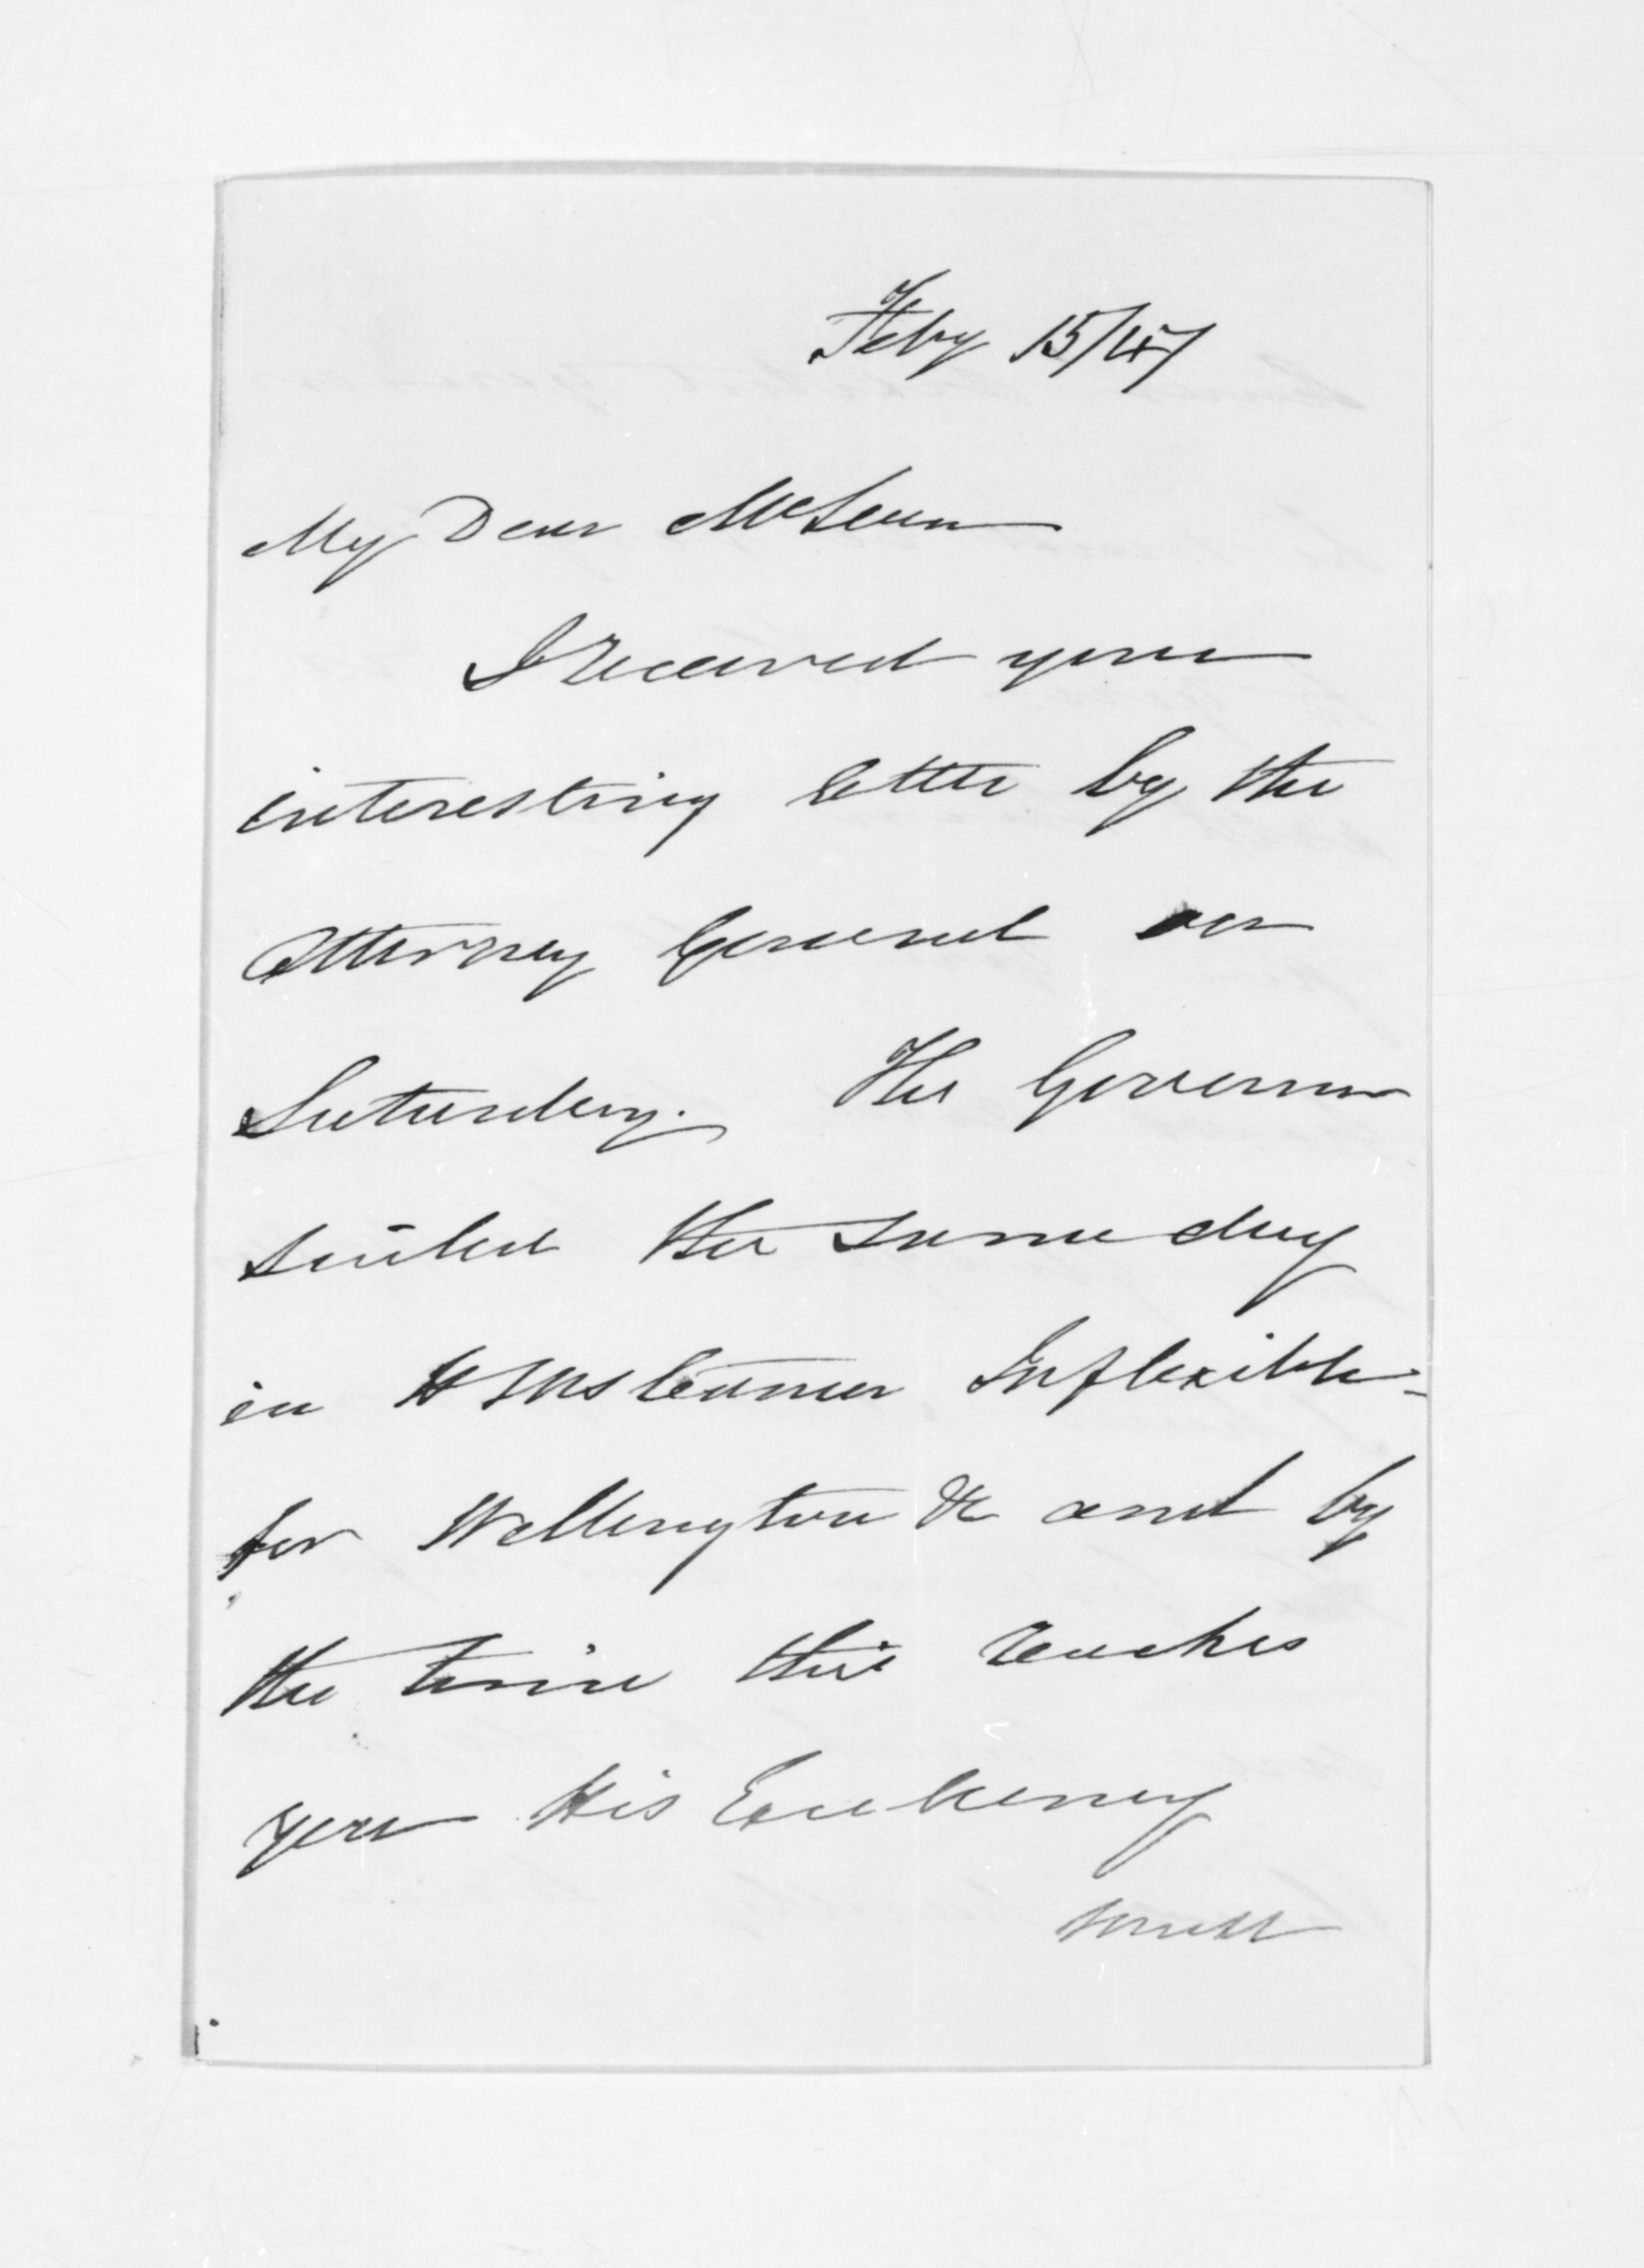 Feby 15/47
My Dear McLean
I received your
interesting letter by the
Attorney General on
Saturday. The Governor
sailed the same day
in H M Steamer Inflexible
for Wellington &c and by
the time this reaches
you His Excellency